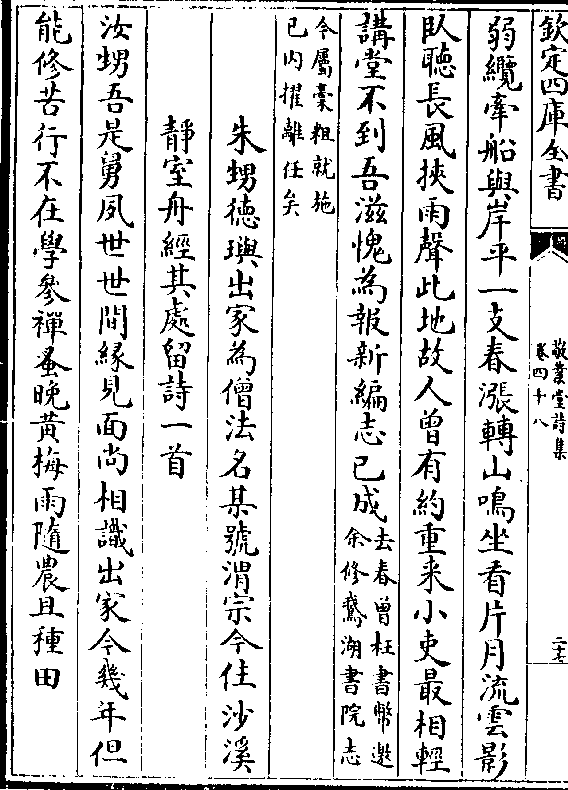 欽定四庫全書
敬業堂詩集
卷四十八
二十七
弱纜牽船與岸平一支春漲轉山鳴坐看片月流雲影
臥聽長風挾雨聲此地故人曾有約重来小吏最相輕
講堂不到吾滋愧為報新編志已成
去春曾枉書幣邀
余修鵞湖書院志
今屬稾粗就施
已内擢離任矣
朱甥徳璵出家為僧法名某號渭宗今住沙溪
靜室舟經其處留詩一首
汝甥吾是舅夙世世間縁見面尚相識出家今幾年但
能修苦行不在學參禪蚤晚黃梅雨隨農且種田